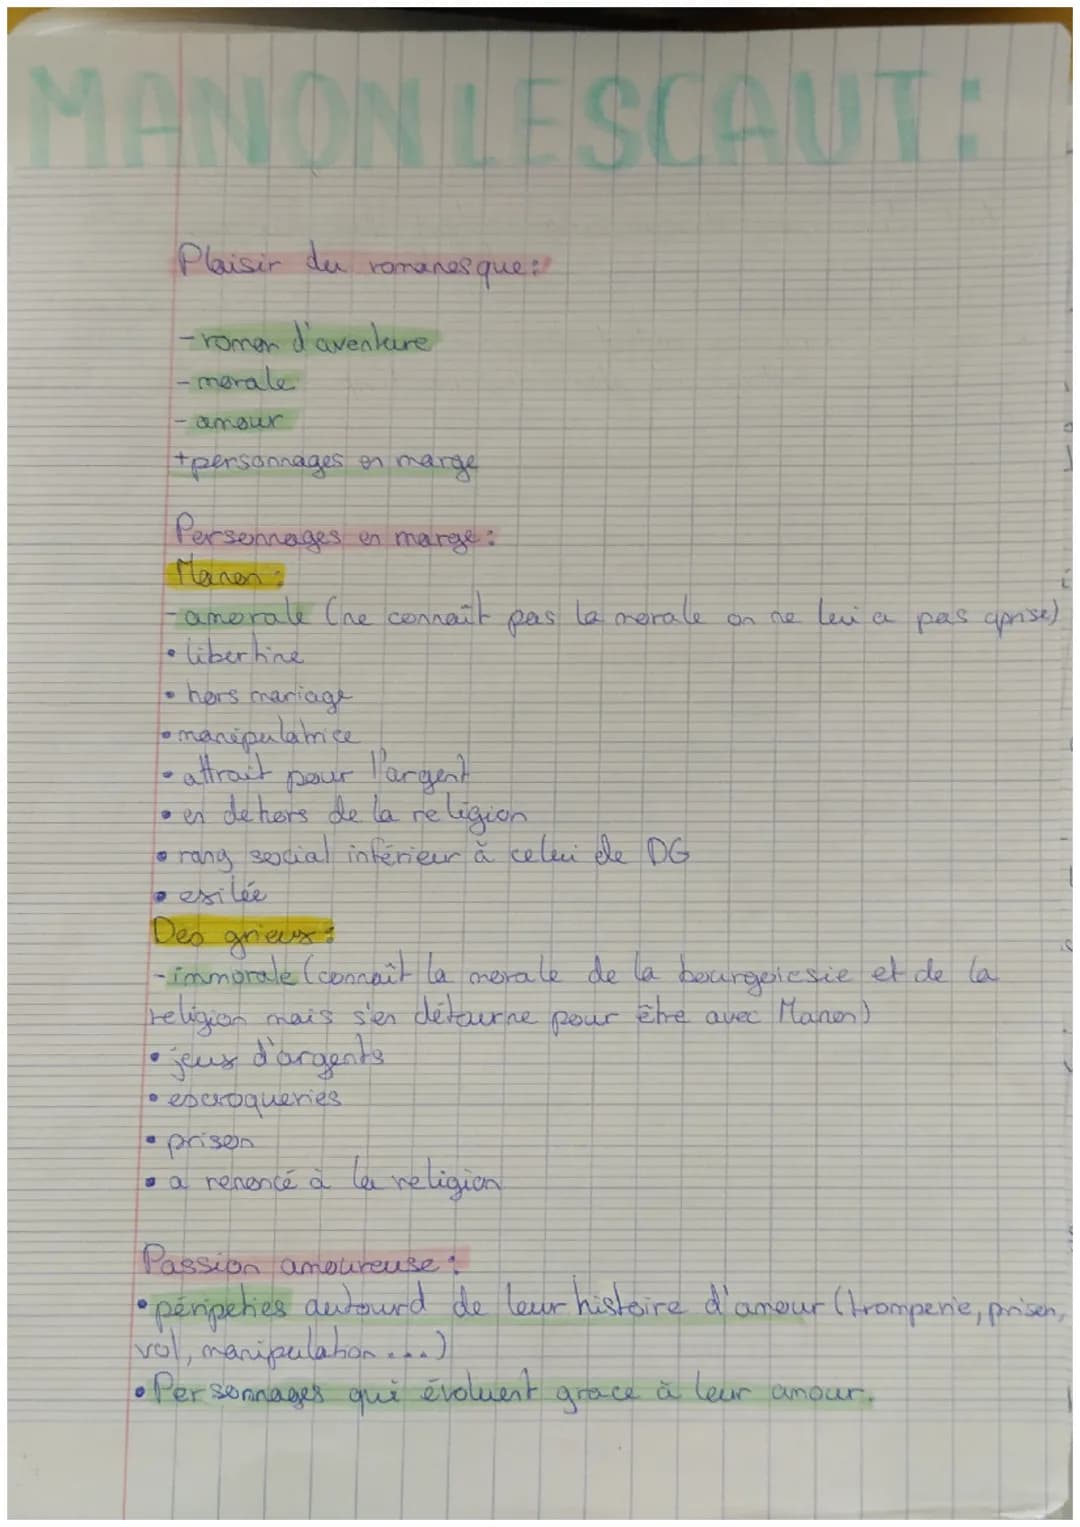 MANON LESCAUT :
Plaisir du romanesque :
- roman d'aventure
- morale
- amour
+ personnages en marge
Personnages en marge :
Manon :
- amorale (ne connaît pas la morale on ne lui a pas aprise)
• libertine
• hors mariage
• manipulatrice
• attrait pour l'argent
• en dehors de la religion
• rang social inférieur à celui de DG
• exilée
Des grieux :
- immorale (connaît la morale de la bourgeoiesie et de la
religion mais s'en détourne pour être avec Manon)
• jeux d'argents
• escroqueries
• prison
• a renoncé à la religion
Passion amoureuse :
• péripeties autourd de leur histoire d'amour (tromperie, prison,
vol, manipulation...)
• Personnages qui évoluent grace à leur amour.